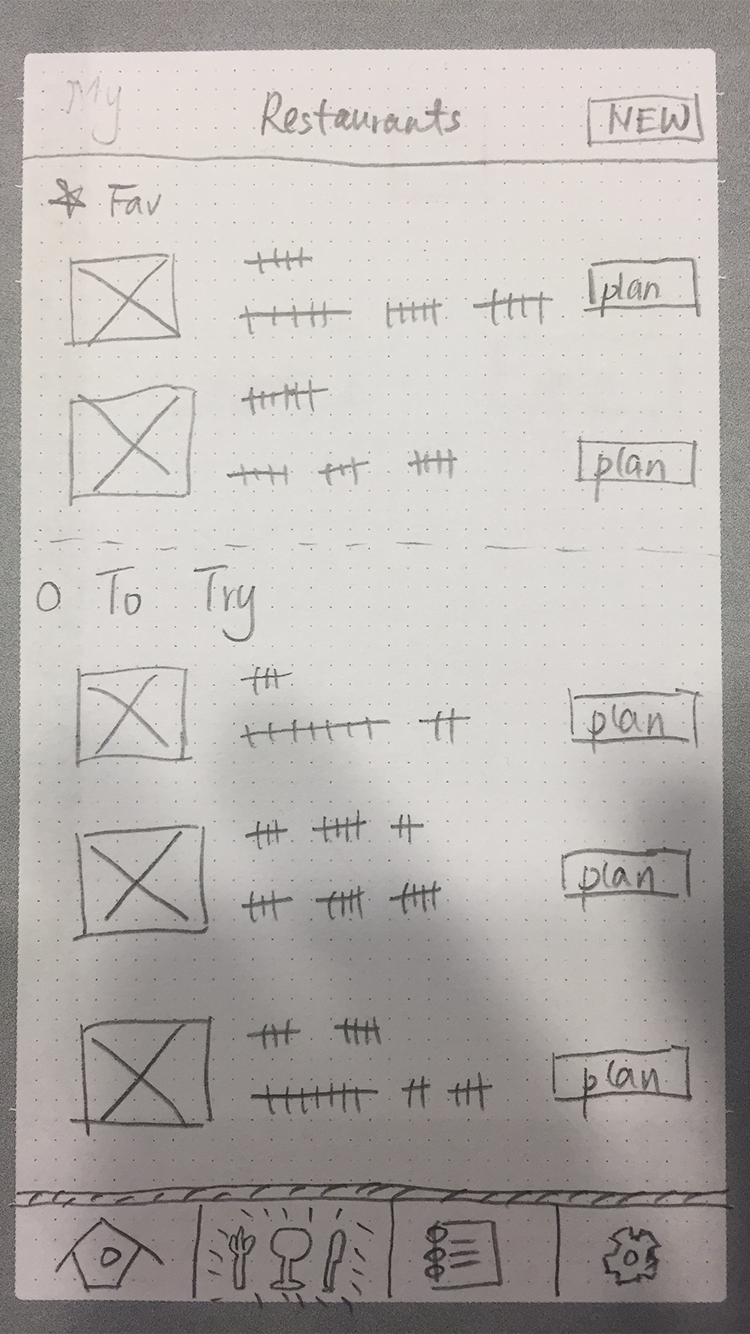 My Restaurants NEW
Fav
plan
plan
To Try
plan
plan
plan